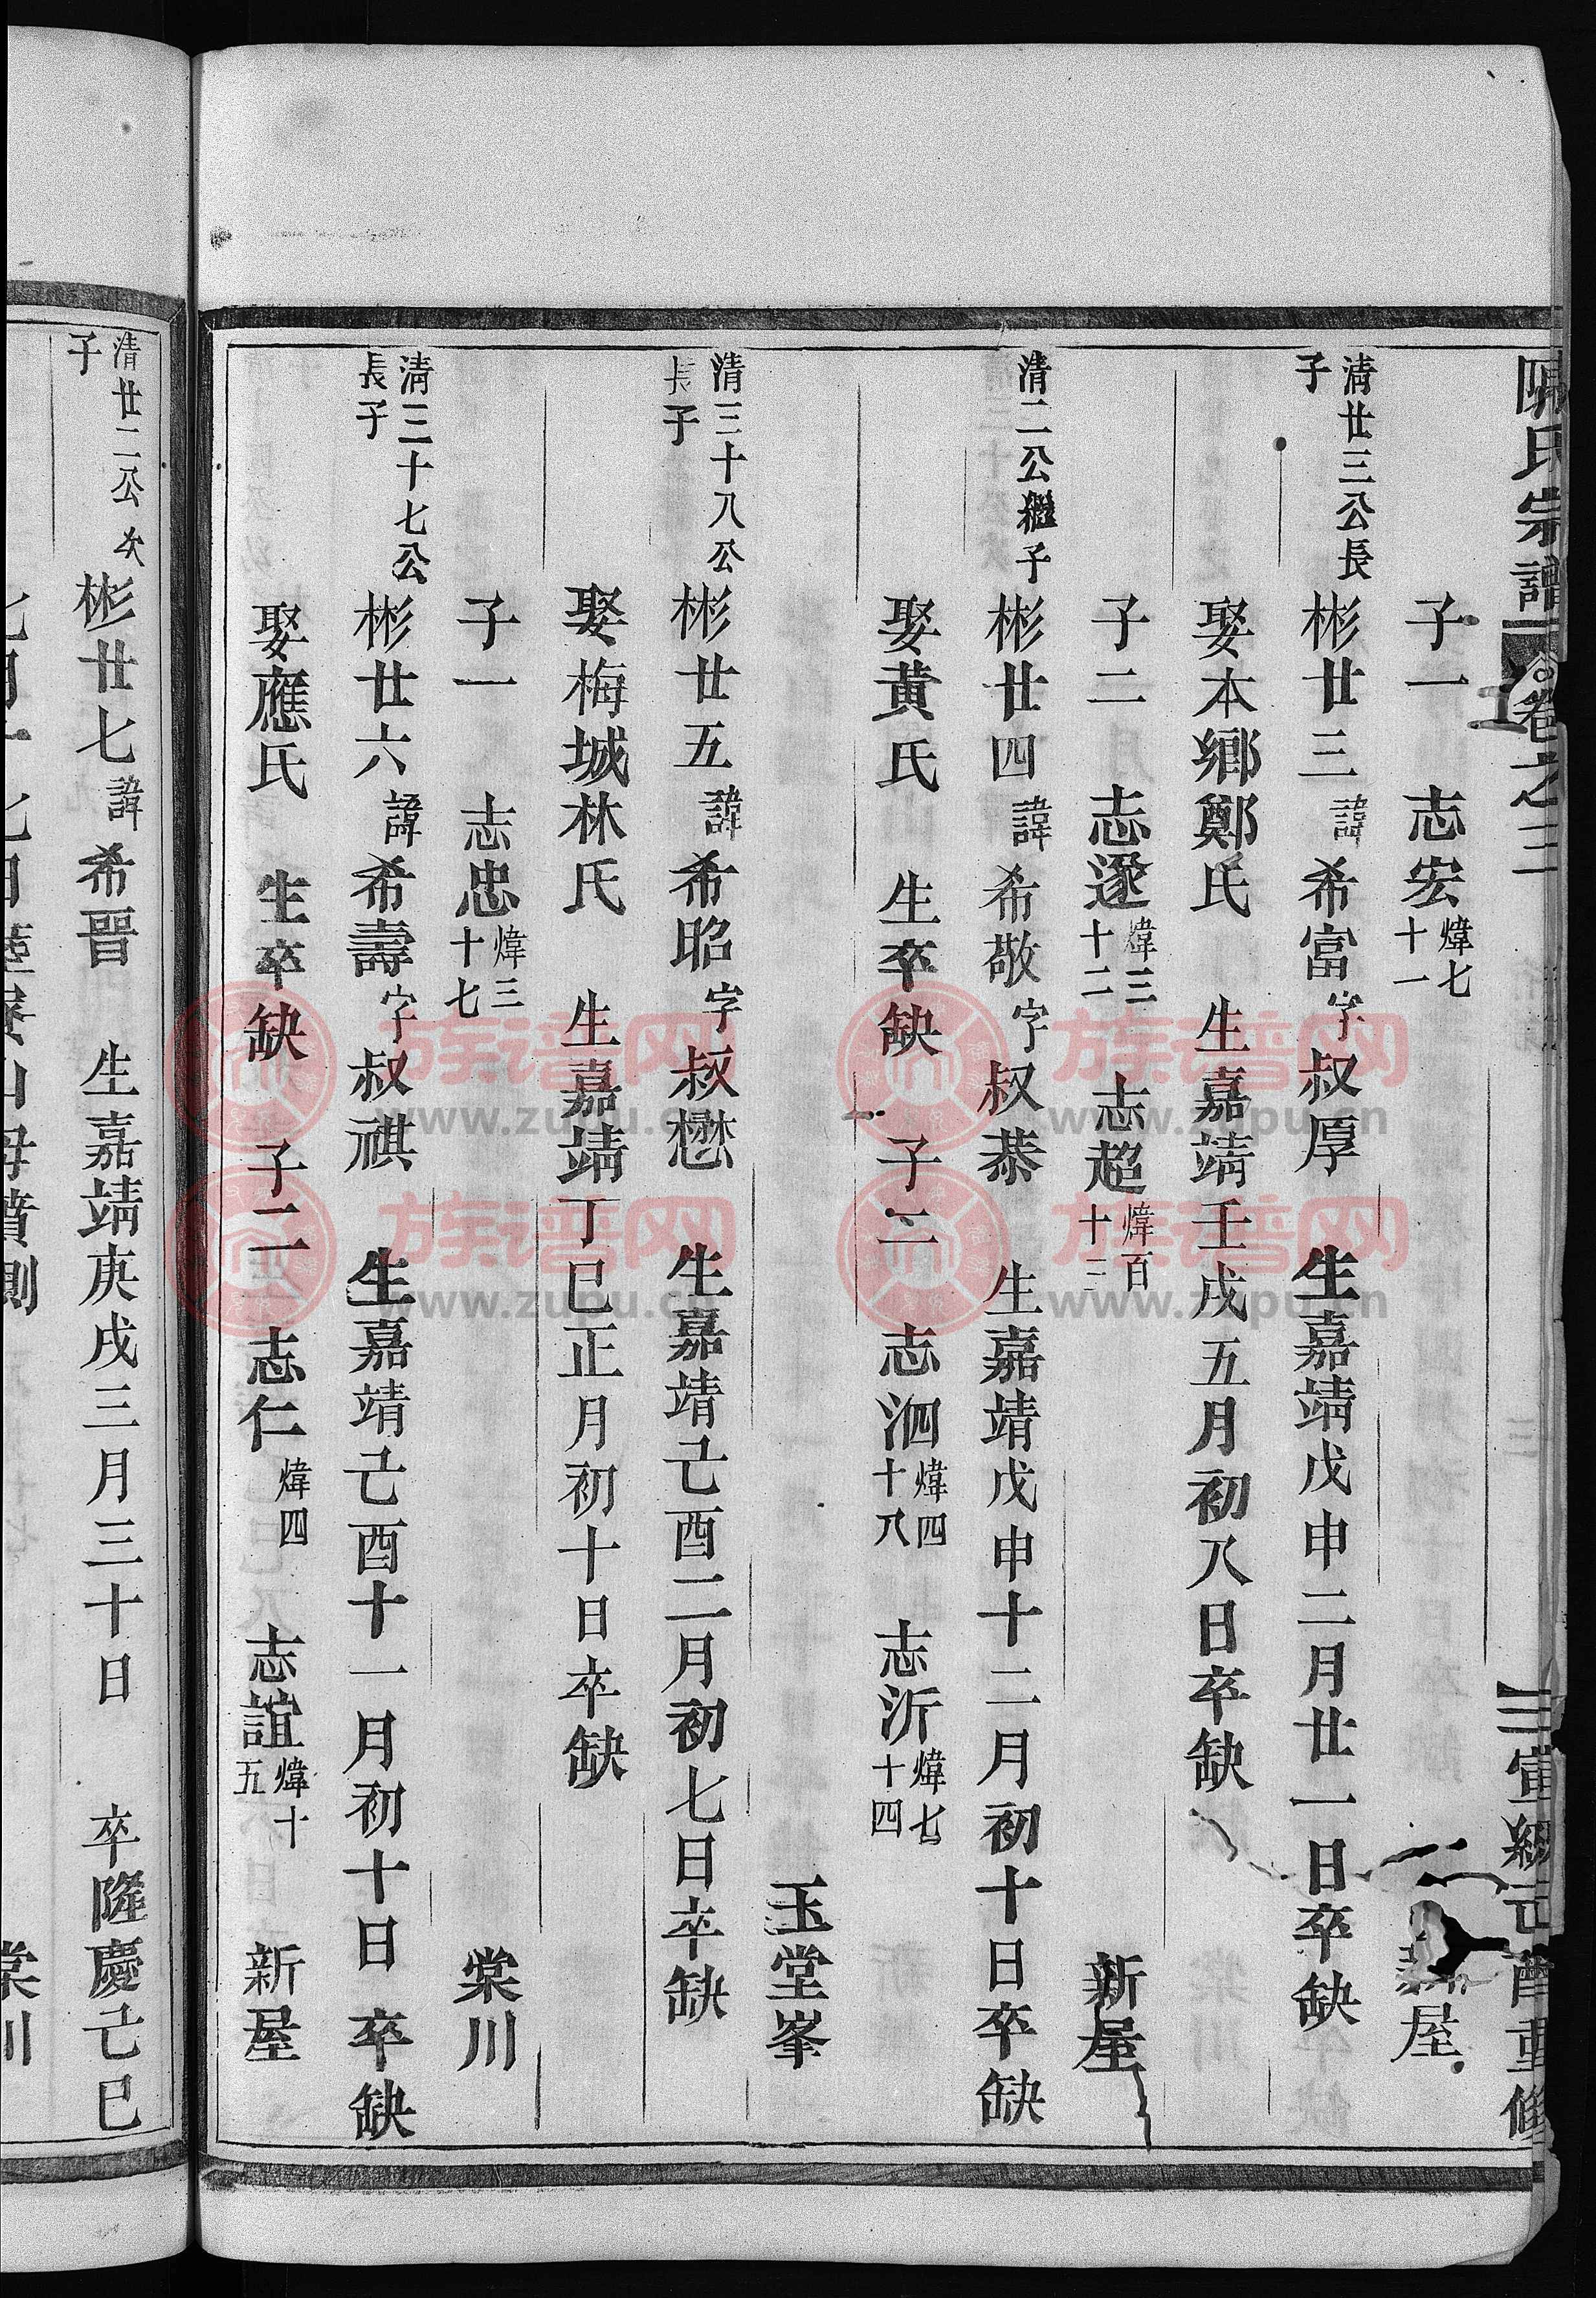 氏宗譜 卷之三 宣統己酉重修
子一 志宏 煒七十一 屋
清廿三公長子 彬廿三 諱希富 字叔厚 生嘉靖戊申二月廿一日卒缺
娶本鄉鄭氏 生嘉靖壬戌五月初八日卒缺
子二 志遂 煒三十二 志超 煒百十三 新屋
清二公繼子 彬廿四 諱希敬 字叔恭 生嘉靖戊申十二月初十日卒缺
娶黄氏 生卒缺 子二 志泗 煒四十八 志沂 煒七十四
玉堂峯
清三十八公長子 彬廿五 諱希昭 字叔懋 生嘉靖己酉二月初七日卒缺
娶梅城林氏 生嘉靖丁巳正月初十日卒缺
子一 志忠 煒三十七 棠川
清三十七公長子 彬廿六 諱希壽 字叔祺 生嘉靖己酉十一月初十日卒缺
娶應氏 生卒缺 子二 志仁 煒四 志誼 煒十五 新屋
清廿二公次子 彬廿七 諱希晉 生嘉靖庚戌三月三十日 卒隆慶己巳
山母墳側 棠川
族谱网 www.zupu.cn
族谱网 www.zupu.cn
族谱网 www.zupu.cn
族谱网 www.zupu.cn